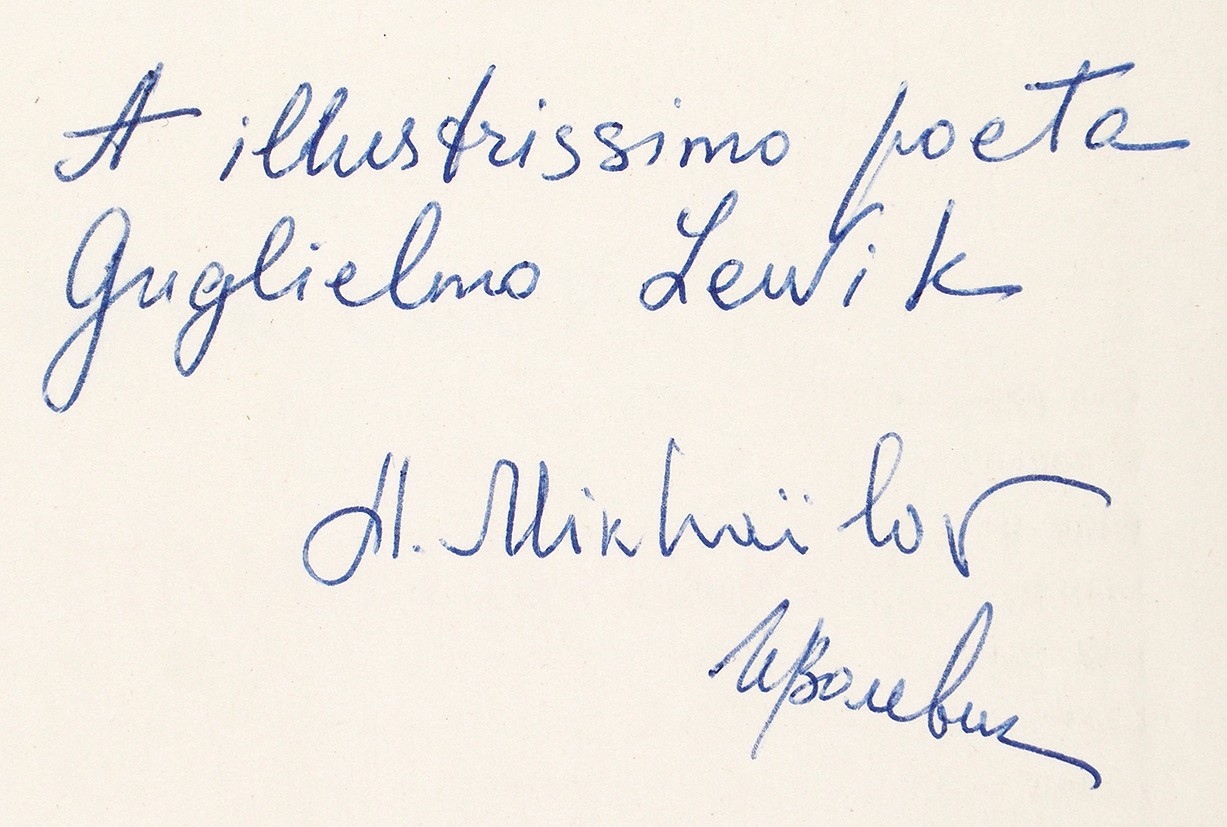 A illustrissimo poeta
Guglielmo Lewik
A. Mikhaïlov
ИВолевич